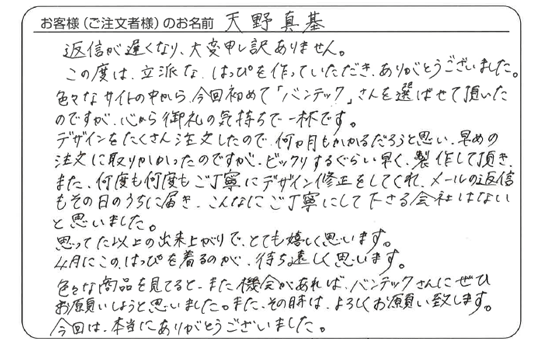 お客様（ご注文者様）のお名前 天野真基
返信が遅くなり、大変申し訳ありません。
この度は、立派な、はっぴを作っていただき、ありがとうございました。
色々なサイトの中から、今回初めて「バンテック」さんを選ばせて頂いた
のですが、心から御礼の気持ちで一杯です。
デザインをたくさん注文したので、何ヵ月もかかるだろうと思い、早めの
注文に取りかかったのですが、ビックリするぐらい早く、製作して頂き、
また、何度も何度もご丁寧にデザイン修正をしてくれ、メールの返信
もその日のうちに届き、こんなにご丁寧にして下さる会社はない
と思いました。
思ってた以上の出来上がりで、とても嬉しく思います。
4月にこの、はっぴを着るのが、待ち遠しく思います。
色々な商品を見てると、また機会があれば、バンテックさんにぜひ
お願いしようと思いました。また、その時は、よろしくお願い致します。
今回は、本当にありがとうございました。